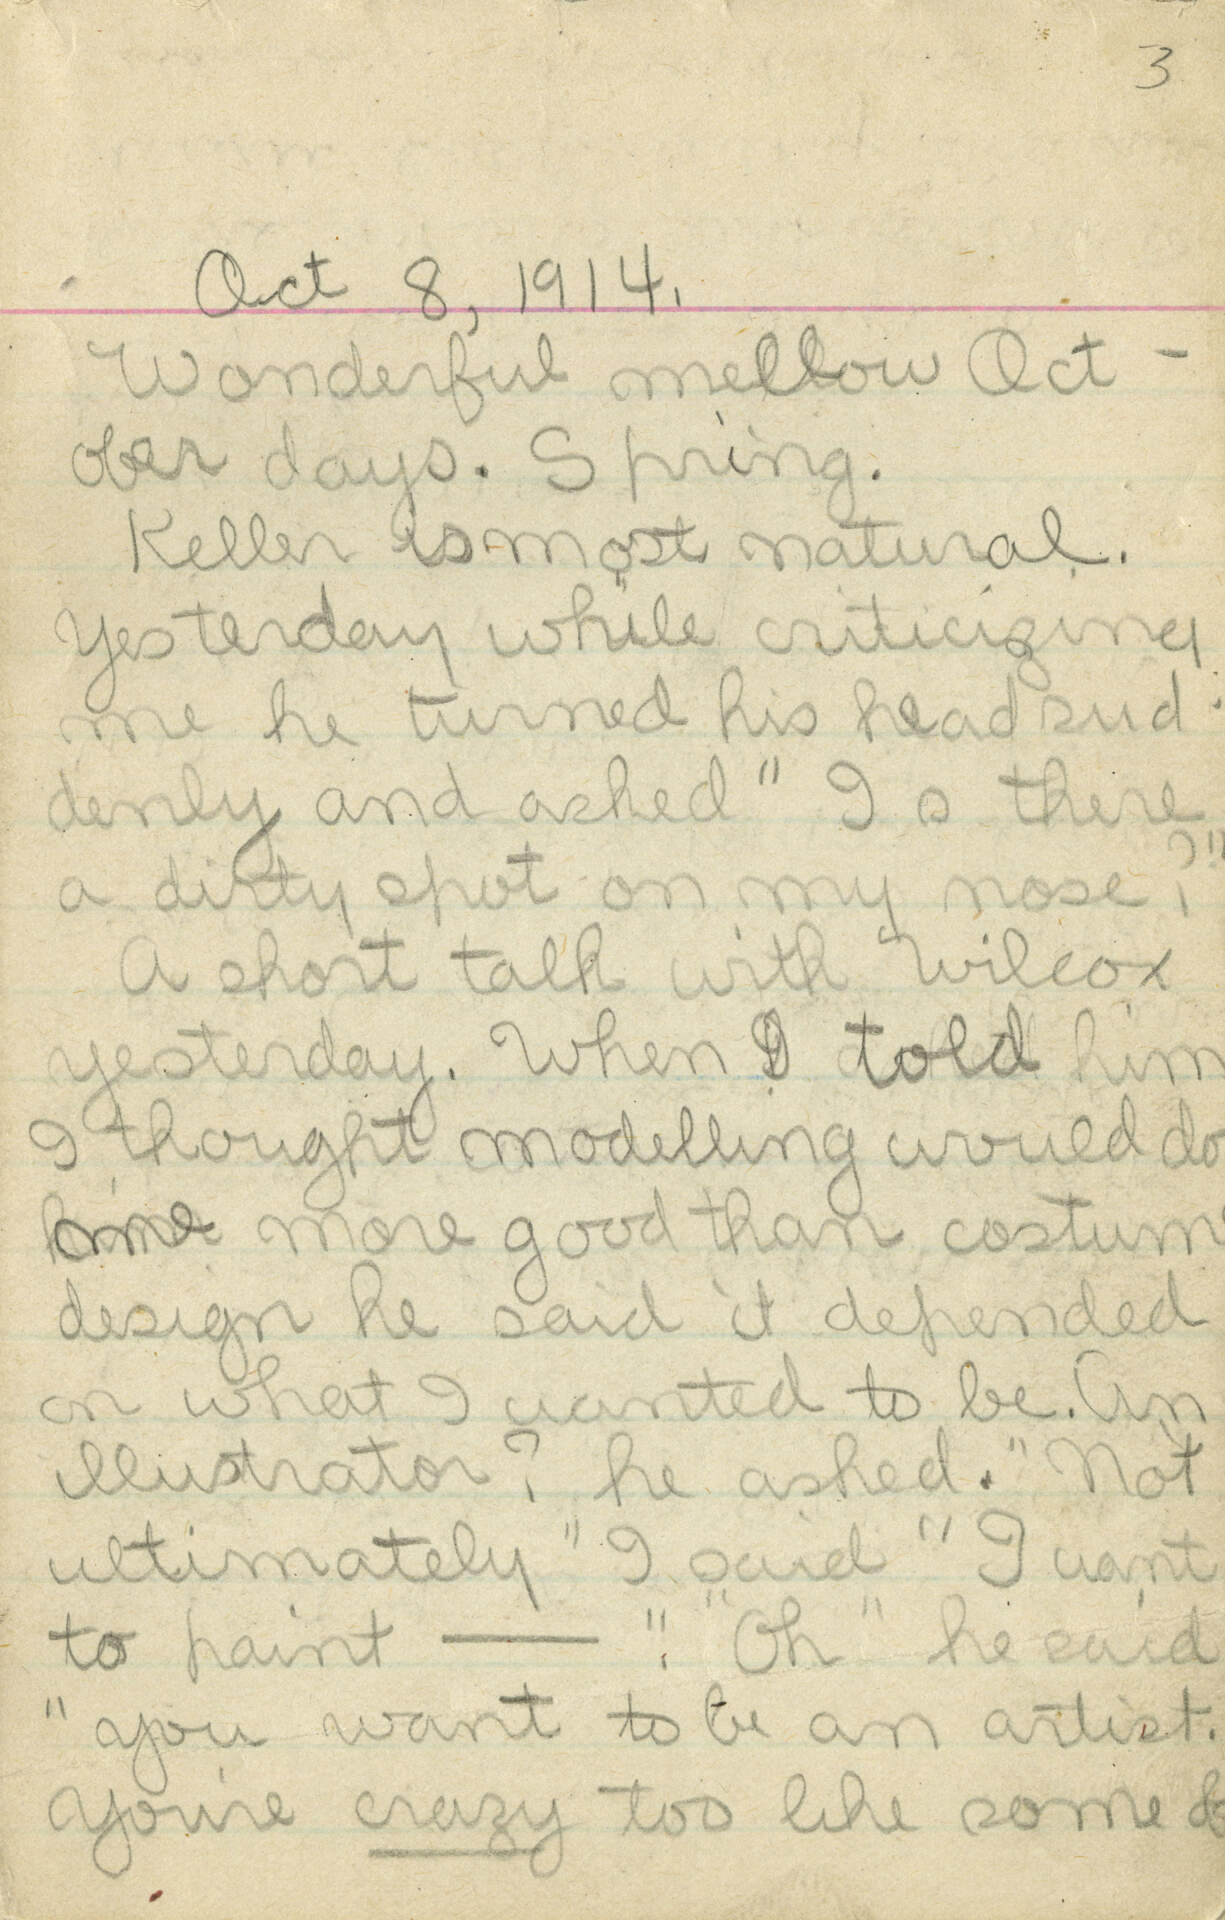 3
Oct 8, 1914.
Wonderful mellow Oct -
ober days. Spring.
Keller is most natural.
Yesterday while criticizing
me he turned his head sud-
denly and asked " Is there
a dirty spot on my nose?"
A short talk with Wilcox
yesterday. When I told him
I thought modelling would do
me more good than costume
design he said it depended
on what I wanted to be. An
illustrator? he asked. "Not
ultimately" I said " I want
to paint —— ". "Oh" he said
"you want to be an artist.
You're crazy too like some of